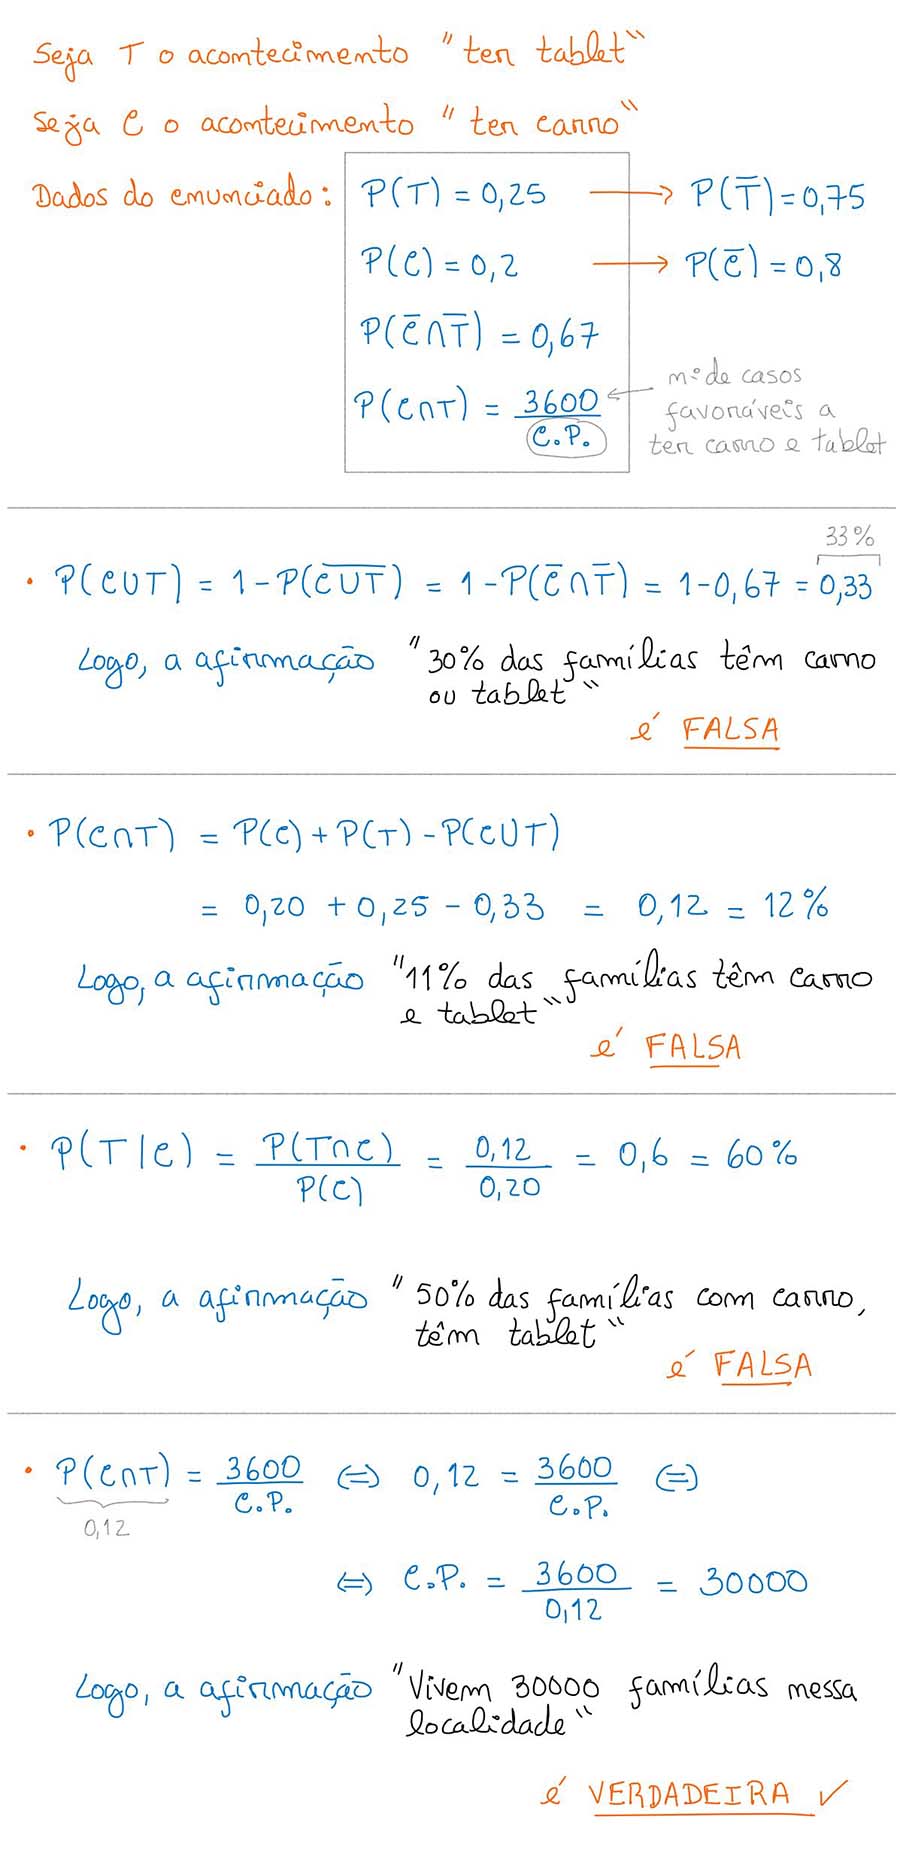 Seja T o acontecimento "ter tablet"
Seja C o acontecimento "ter carro"
Dados do enunciado: P(T) = 0,25 → P(T̅) = 0,75
P(C) = 0,2 → P(C̅) = 0,8
P(C̅∩T̅) = 0,67
P(C∩T) = 3600/C.P. ← nº de casos
favoráveis a
ter carro e tablet
33%
• P(C∪T) = 1 - P(C̅∪̅T̅) = 1 - P(C̅∩T̅) = 1 - 0,67 = 0,33
Logo, a afirmação "30% das famílias têm carro
ou tablet"
é FALSA
• P(C∩T) = P(C) + P(T) - P(C∪T)
= 0,20 + 0,25 - 0,33 = 0,12 = 12%
Logo, a afirmação "11% das famílias têm carro
e tablet"
é FALSA
• P(T|C) = P(T∩C)/P(C) = 0,12/0,20 = 0,6 = 60%
Logo, a afirmação "50% das famílias com carro,
têm tablet"
é FALSA
• P(C∩T) = 3600/C.P. ⇔ 0,12 = 3600/C.P. ⇔
0,12
⇔ C.P. = 3600/0,12 = 30000
Logo, a afirmação "Vivem 30000 famílias nessa
localidade"
é VERDADEIRA ✓